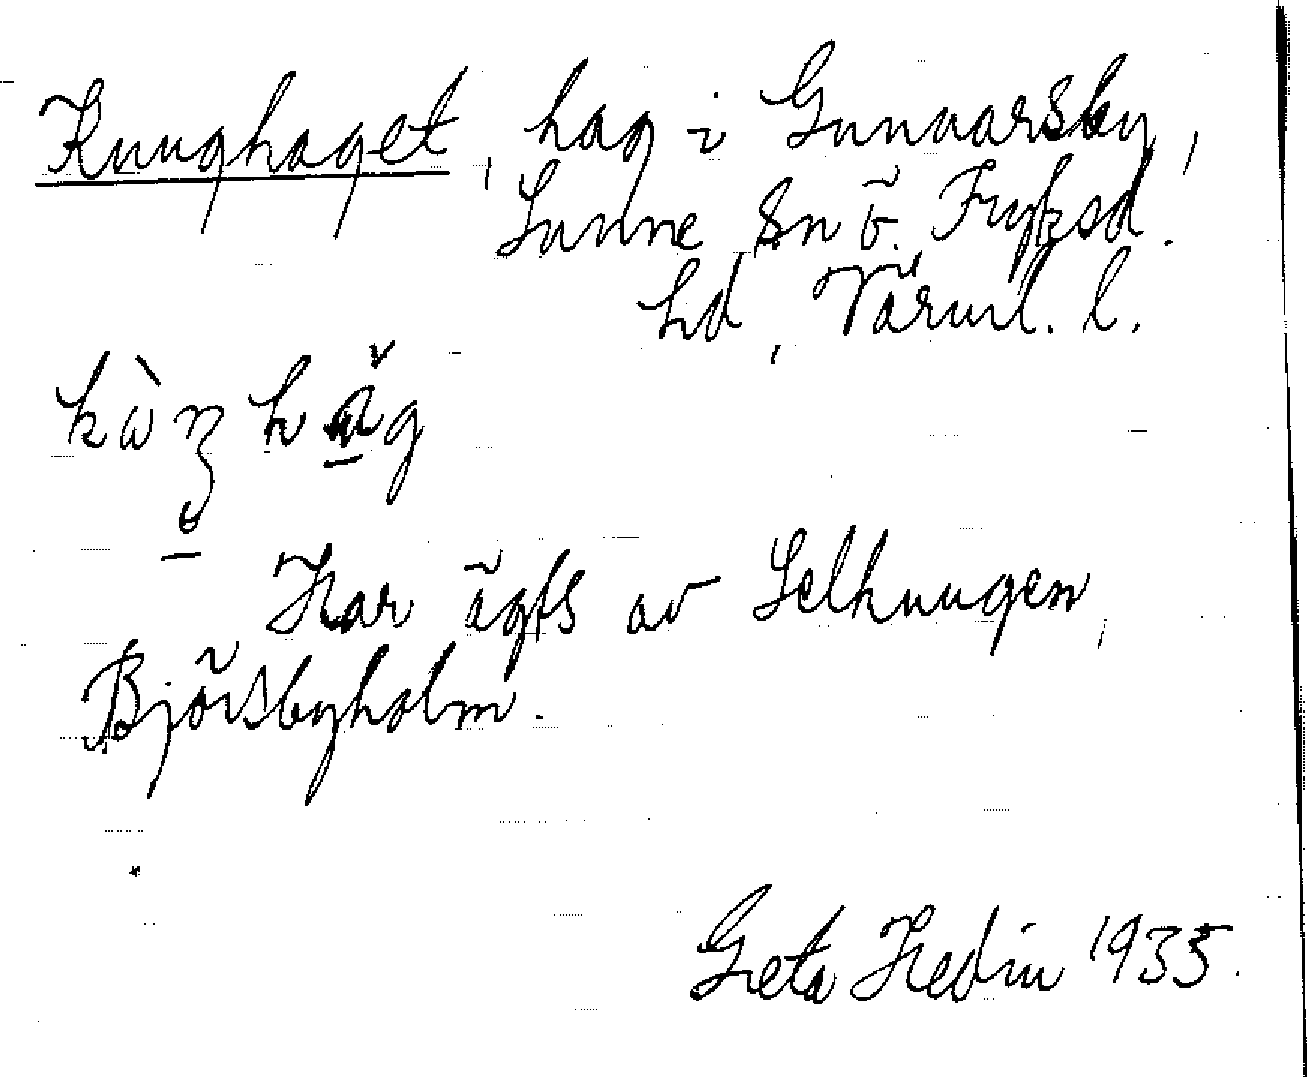 Kunghaget, hag i Gunnarsby,
Sunne sn Ö. Fryksd.
hd, Värml. l.
Har ägts av Selkungen,
Björsbyholm.
Greta Hedin 1935.